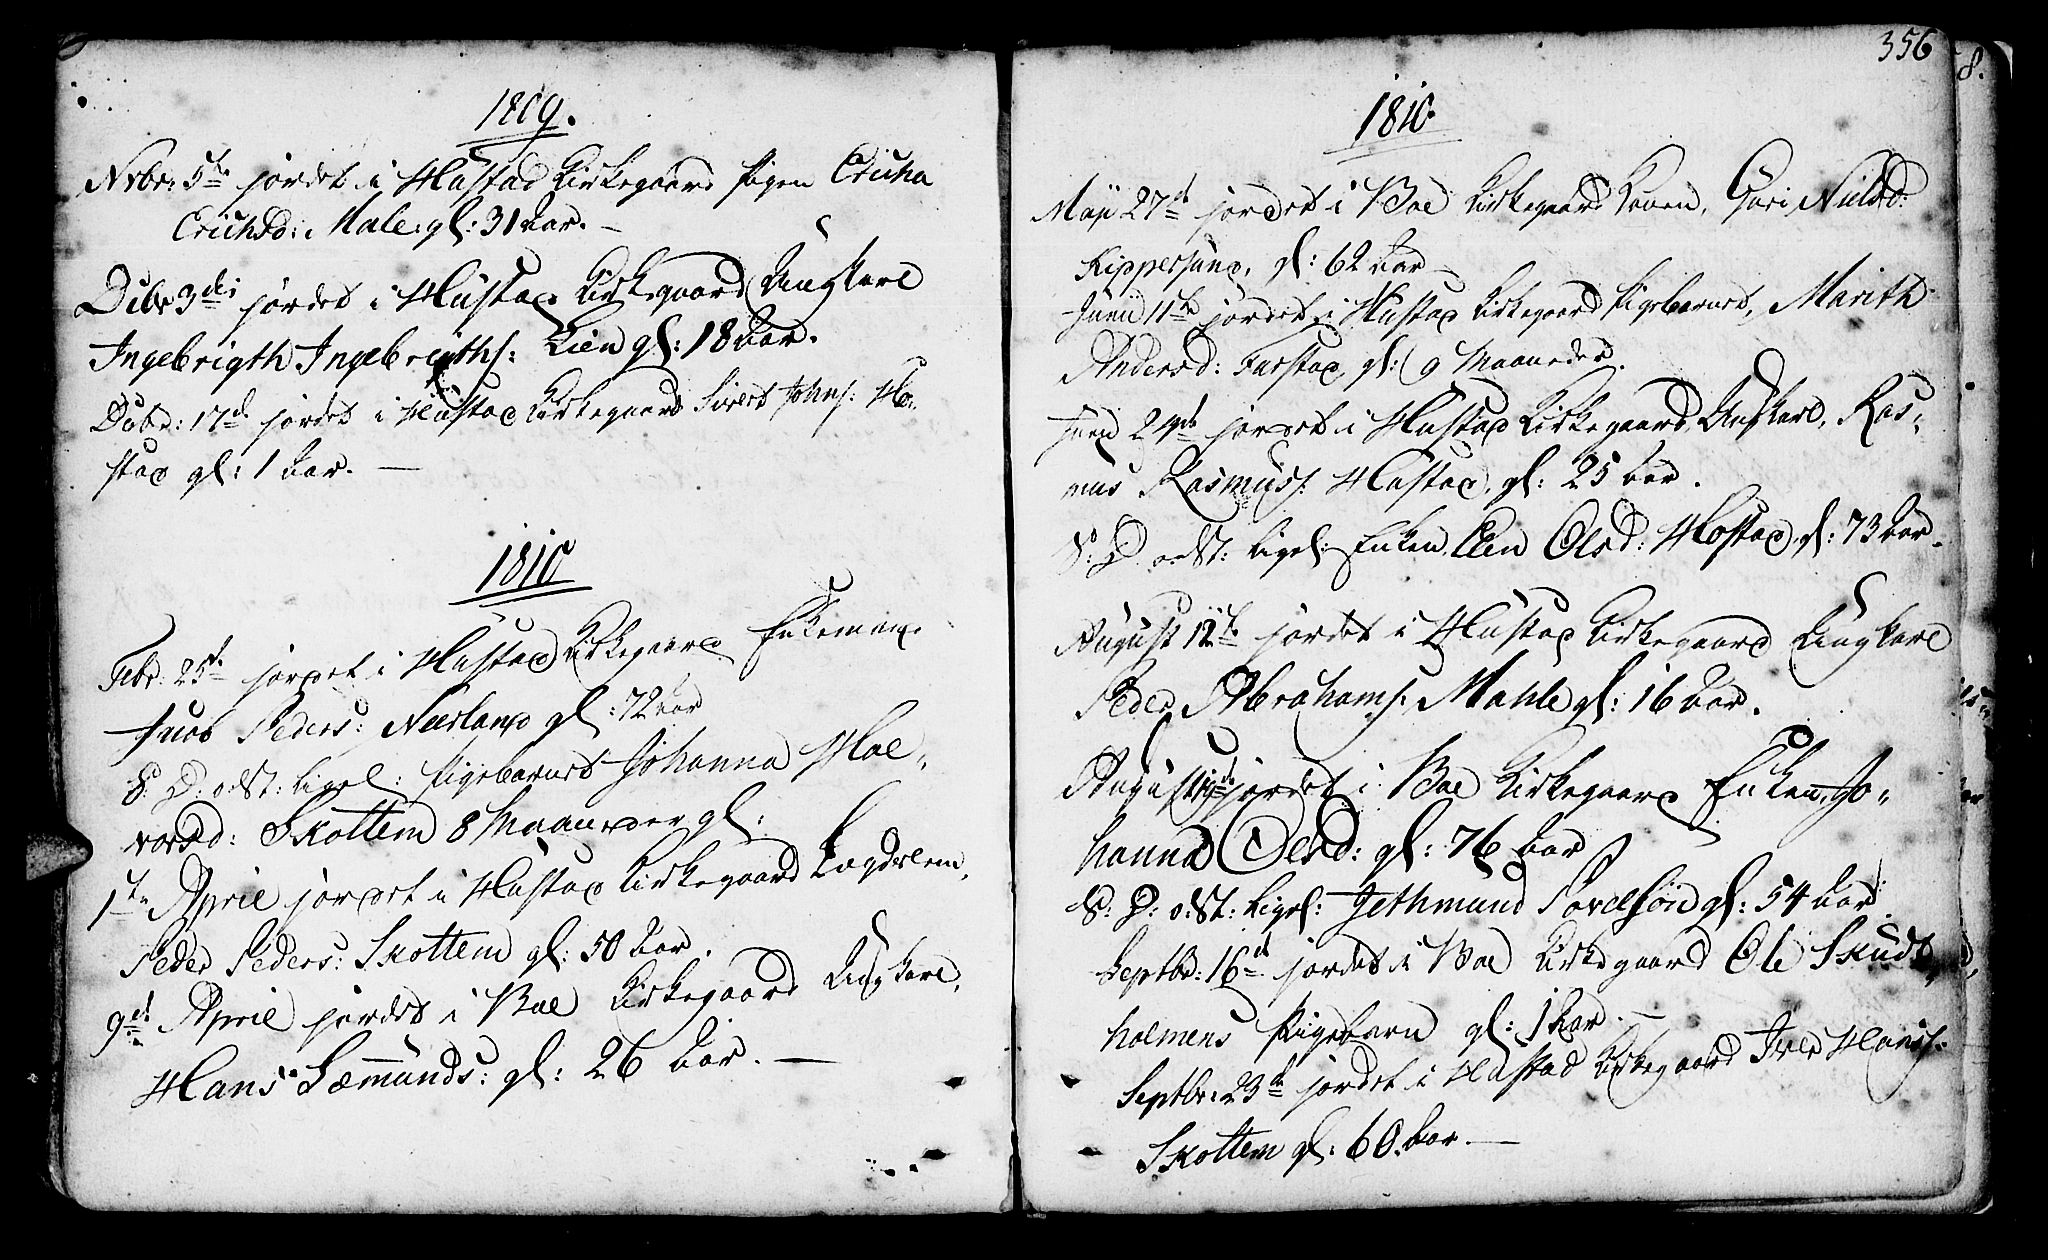 1809.
Nvbr: 5te jordet i Hustad Kirkegaard Pigen Ericha
Erichsd: Male: gl: 31 Aar. –
Dcbr 3die jordet i Hustad Kirkegaard Ungkarl
Ingebrigth Ingebrigths: Lien gl: 18 Aar.
Dcbr: 17de jordet i Hustad Kirkegaard Sivert Johns: Ho-
stad gl: 1 Aar. —
1810
Febr: 25te jordet i Hustad Kirkegaard Enkemand
Peders: Neerland gl: 72 Aar
S: D: o: St: Ligel: Pigebarnet Johanna Hal-
vorsd: Skottem 8 Maaneder gl:
1te April jordet i Hustad Kirkegaard Lægdslem,
Peder Peders: Skottem gl: 50 Aar.
9de April jordet i Boe Kirkegaard Ungkarl,
Hans Sæmunds: gl: 26 Aar. —
356
1810.
Maji 27de jordet i Boe Kirkegaard Konen, Guri Nielsd:
gl: 62 Aar –
Junii 11te jordet i Hustad Kirkegaard Pigebarnet, Marith
Andersd: Farstad, gl: 9 Maaneder.
Junii 24de jordet i Hustad Kirkegaard, Ungkarl, Ras-
mus Rasmuss: Hustad, gl: 25 Aar.
S: D: o: St: Ligel: Enken, Elen Olsd: Hostad, gl: 73 Aar.
August 12te jordet i Hustad Kirkegaard Ungkarl
Peder Abrahams: Mahle gl: 16 Aar.
August jordet i Boe Kirkegaard Enken, Jo-
hanna Olsd: gl: 76 Aar
S: D: o: St: Ligel: Jethmund Povelsøn gl: 54 Aar.
Septbr: 16de jordet i Boe Kirkegaard Ole Skuds-
holmens Pigebarn gl: 1 Aar. —
Septbr: 23de jordet i Hustad Kirkegaard Iver Hanss:
Skottem gl: 60. Aar. —